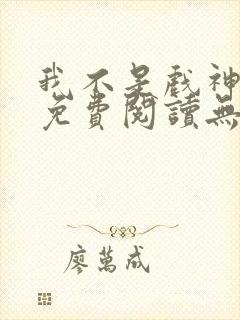 我不是戲神
免費閱讀無
廖萬成